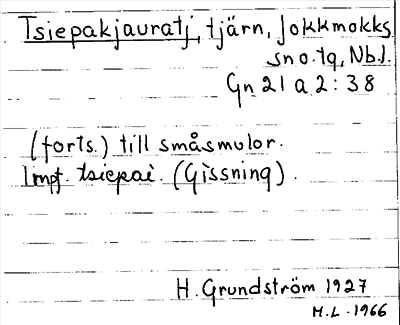 Tsiepakjauratj, tjärn, Jokkmokks
sn o. tg, Nb.l.
Gn 21 a 2:38
(forts.) till småsmulor.
Impf. tsiepai. (Gissning).
H. Grundström 1927
H.L. 1966